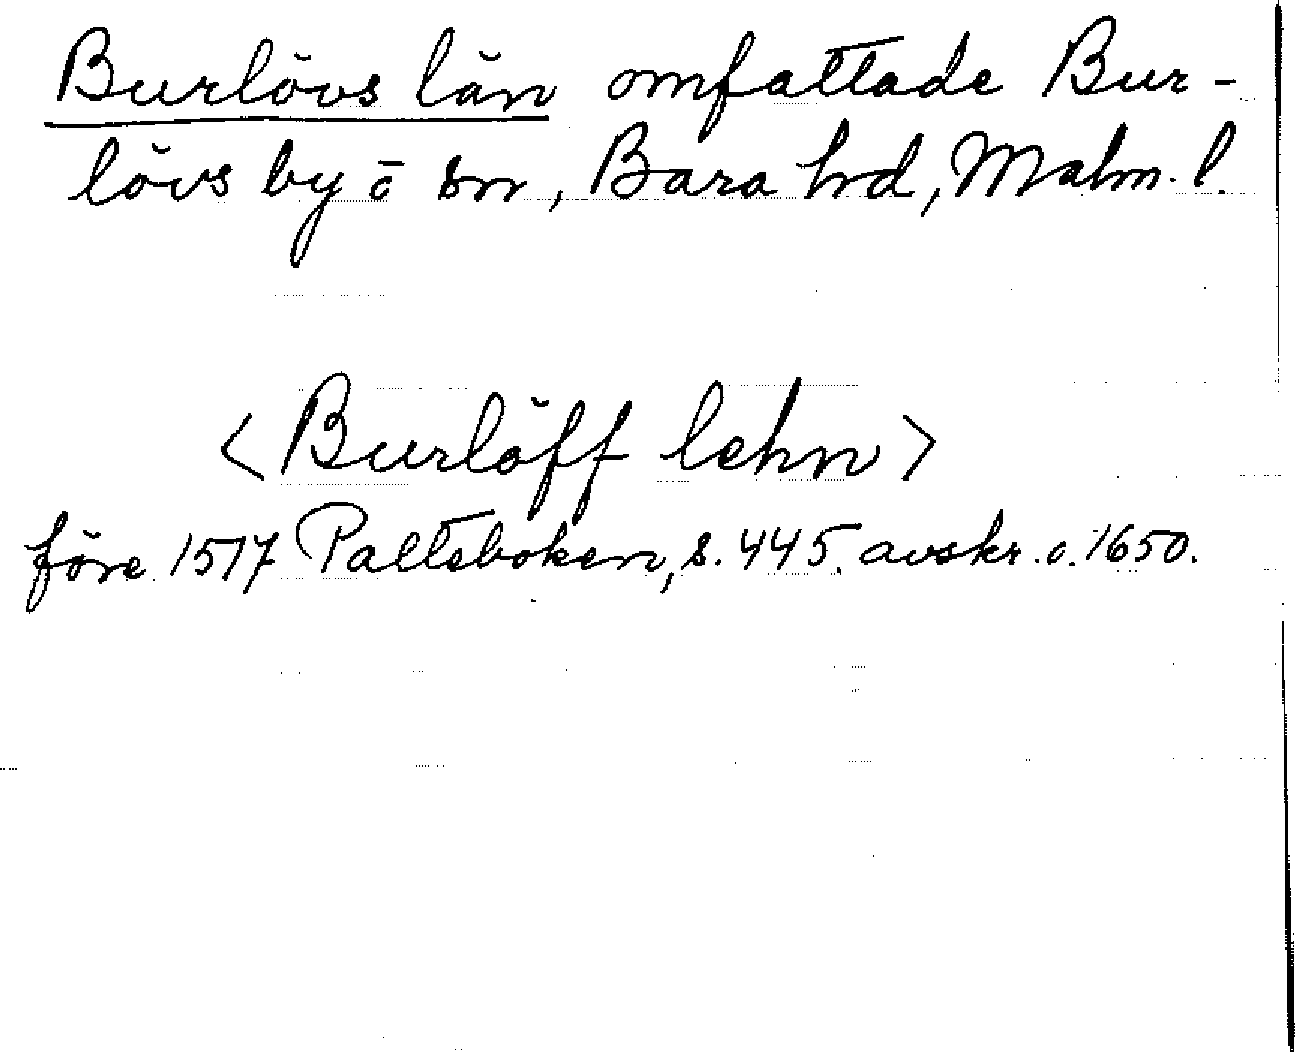 Burlövs län omfattade Bur-
lövs by ō sn, Bara hrd, Malm. l.
<Burlöff lehn>
före 1517 Palteboken, s. 445. avskr. o. 1650.